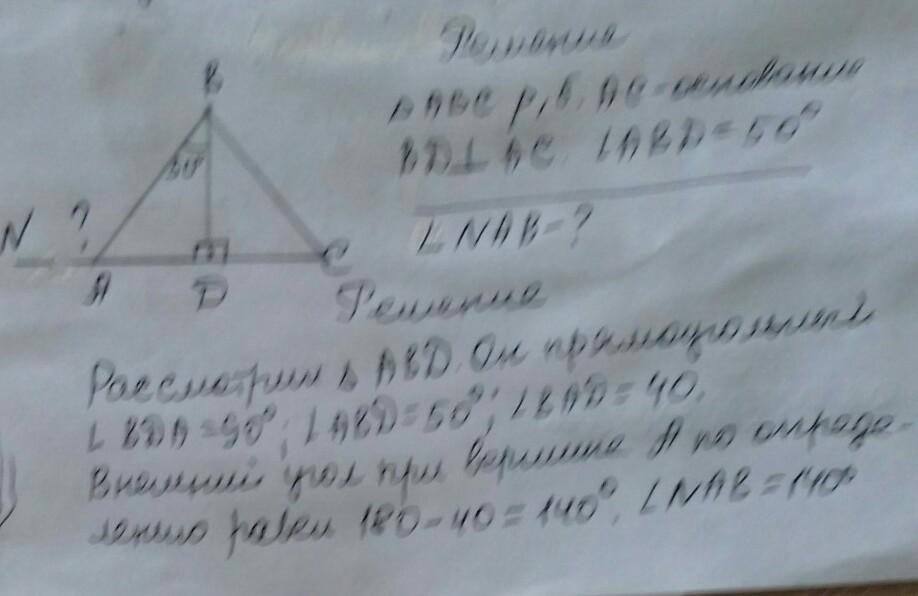 Решение
B
Δ ABC р/б. AC - основание
BD⊥AC. ∠ABD=50°
50°
N ?
∠NAB=?
A D C
Решение
Рассмотрим Δ ABD. Он прямоугольный
∠BDA=90°; ∠ABD=50°; ∠BAD=40.
Внешний угол при вершине A по опреде-
лению равен 180-40=140°. ∠NAB=140°